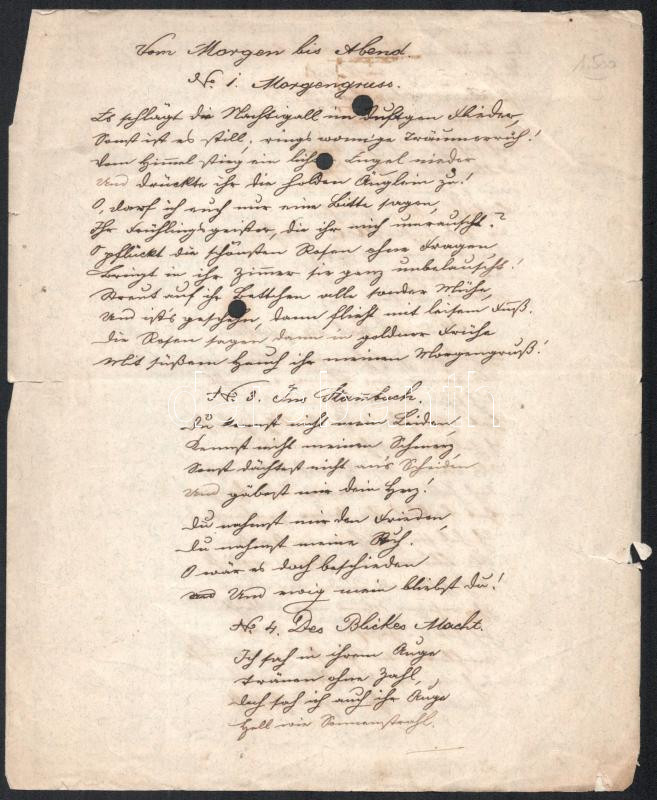 Vom Morgen bis Abend.
No. 1. Morgengruss.
1500
Es schlägt die Nachtigall im duft'gen Flieder,
Sonst ist es still, rings wonnige Träumerruh!
Vom Himmel stieg ein lich Engel nieder
Und drückte ihr die holden Äuglein zu!
O, darf ich euch nur eine Bitte sagen,
Ihr Frühlingsgeister, die ihr mich umrauscht?
O pflückt die schönsten Rosen ohne Fragen
Bringt in ihr Zimmer sie ganz unbelauscht!
Streut auf ihr Bettchen alle sonder Mühe,
Und ist's geschehn, dann flieht mit leisem Fuß.
Die Rosen sagen dann in goldner Frühe
Mit süßem Hauch ihr meinen Morgengruß!
No. 3. Ins Stammbuch.
Du kennst nicht mein Leiden
Kennst nicht meinen Schmerz
Sonst dächtest nicht an's Scheiden
Und gäbest mir dein Herz!
Du nahmst mir den Frieden,
Du nahmst meine Ruh.
O wär es doch beschieden
Und ewig mein bliebst du!
No. 4. Des Blickes Macht.
Ich sah in ihrem Auge
Tränen ohne Zahl,
Doch sah ich auch ihr Auge
Hell wie Sonnenstrahl.